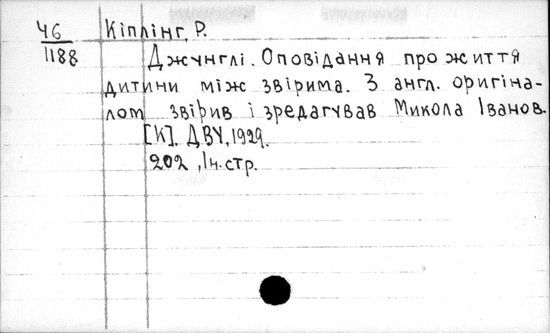 Ч6 Кіплінг, Р.
1188 Джунглі. Оповідання про життя
дитини між звірима. З англ. оригіна-
лом звірив і зредагував Микола Іванов.
[К]. ДВУ, 1929.
202, Iн. стр.